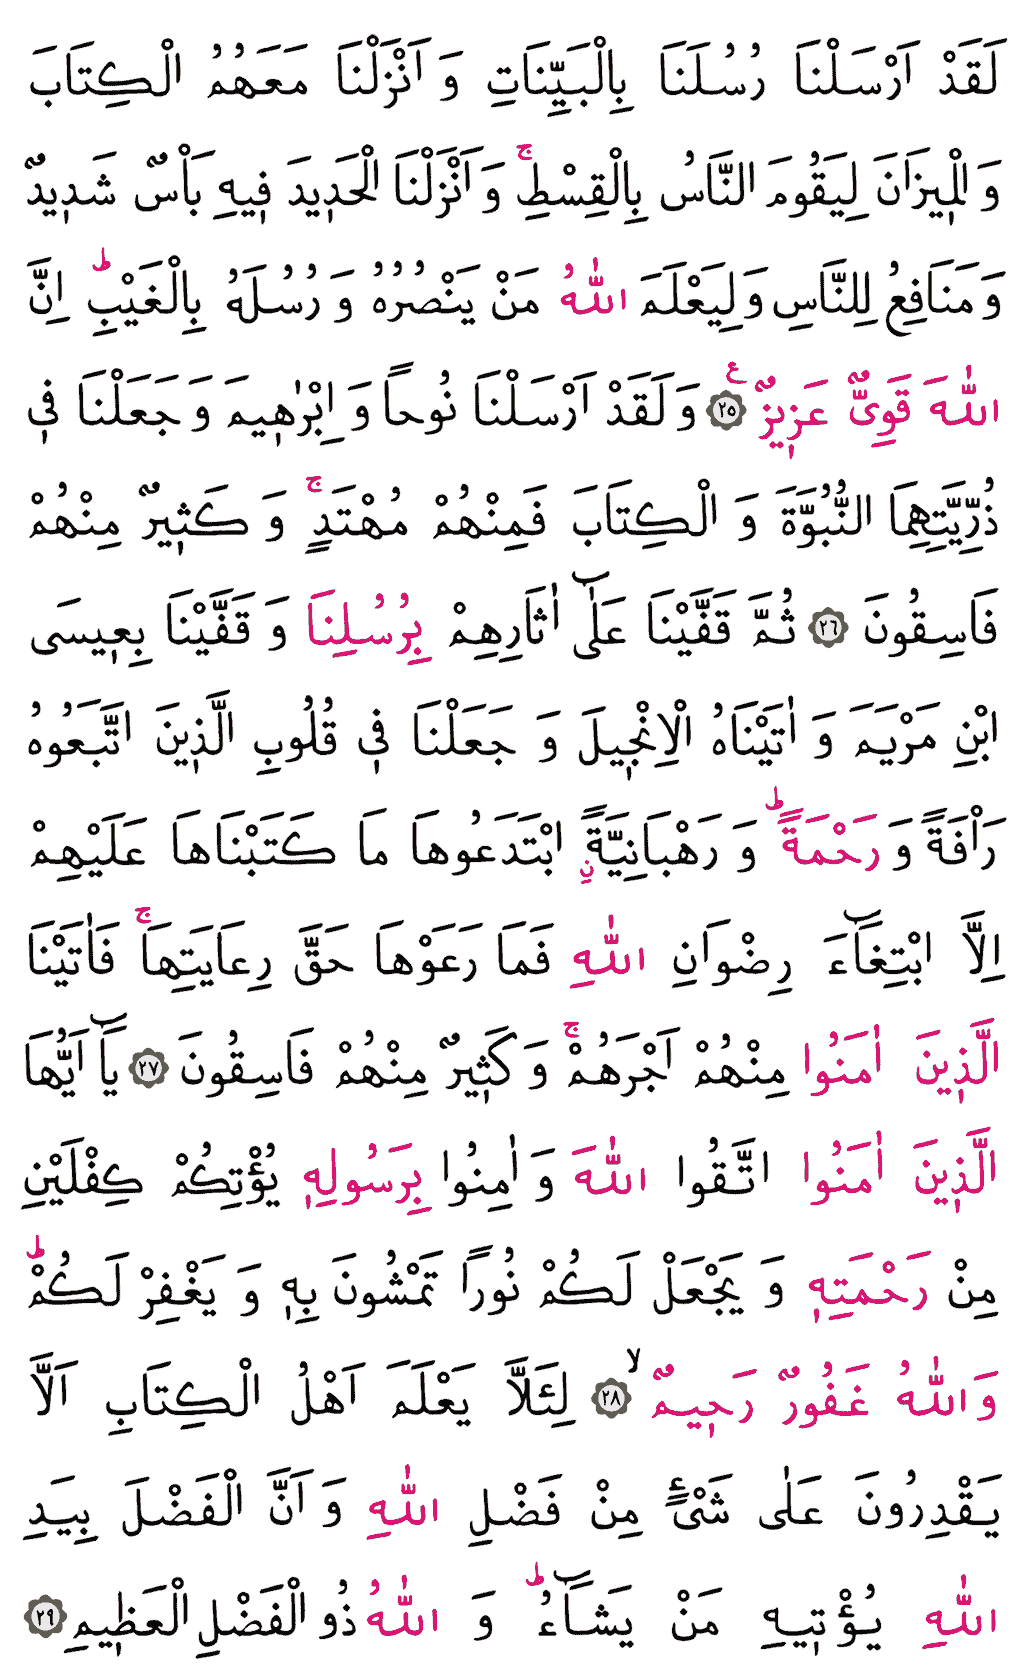 لَقَدْ اَرْسَلْنَا رُسُلَنَا بِالْبَيِّنَاتِ وَ اَنْزَلْنَا مَعَهُمُ الْكِتَابَ
وَ الْم۪يزَانَ لِيَقُومَ النَّاسُ بِالْقِسْطِۚ وَ اَنْزَلْنَا الْحَد۪يدَ ف۪يهِ بَاْسٌ شَد۪يدٌ
وَ مَنَافِعُ لِلنَّاسِ وَ لِيَعْلَمَ اللّٰهُ مَنْ يَنْصُرُهُ وَ رُسُلَهُ بِالْغَيْبِۜ اِنَّ
اللّٰهَ قَوِىٌّ عَز۪يزٌ ࣖ ﴿٢٥﴾ وَ لَقَدْ اَرْسَلْنَا نُوحاً وَ اِبْرٰه۪يمَ وَ جَعَلْنَا ف۪ى
ذُرِّيَّتِهِمَا النُّبُوَّةَ وَ الْكِتَابَ فَمِنْهُمْ مُهْتَدٍۚ وَ كَث۪يرٌ مِنْهُمْ
فَاسِقُونَ ﴿٢٦﴾ ثُمَّ قَفَّيْنَا عَلٰٓى اٰثَارِهِمْ بِرُسُلِنَا وَ قَفَّيْنَا بِع۪يسَى
ابْنِ مَرْيَمَ وَ اٰتَيْنَاهُ الْاِنْج۪يلَ وَ جَعَلْنَا ف۪ى قُلُوبِ الَّذ۪ينَ اتَّبَعُوهُ
رَاْفَةً وَ رَحْمَةًۜ وَ رَهْبَانِيَّةًۨ ابْتَدَعُوهَا مَا كَتَبْنَاهَا عَلَيْهِمْ
اِلَّا ابْتِغَٓاءَ رِضْوَانِ اللّٰهِ فَمَا رَعَوْهَا حَقَّ رِعَايَتِهَاۚ فَاٰتَيْنَا
الَّذ۪ينَ اٰمَنُوا مِنْهُمْ اَجْرَهُمْۚ وَ كَث۪يرٌ مِنْهُمْ فَاسِقُونَ ﴿٢٧﴾ يَٓا اَيُّهَا
الَّذ۪ينَ اٰمَنُوا اتَّقُوا اللّٰهَ وَ اٰمِنُوا بِرَسُولِه۪ يُؤْتِكُمْ كِفْلَيْنِ
مِنْ رَحْمَتِه۪ وَ يَجْعَلْ لَكُمْ نُوراً تَمْشُونَ بِه۪ وَ يَغْفِرْ لَكُمْۜ
وَ اللّٰهُ غَفُورٌ رَح۪يمٌۙ ﴿٢٨﴾ لِئَلَّا يَعْلَمَ اَهْلُ الْكِتَابِ اَلَّا
يَقْدِرُونَ عَلٰى شَىْءٍ مِنْ فَضْلِ اللّٰهِ وَ اَنَّ الْفَضْلَ بِيَدِ
اللّٰهِ يُؤْت۪يهِ مَنْ يَشَٓاءُۜ وَ اللّٰهُ ذُو الْفَضْلِ الْعَظ۪يمِ ﴿٢٩﴾